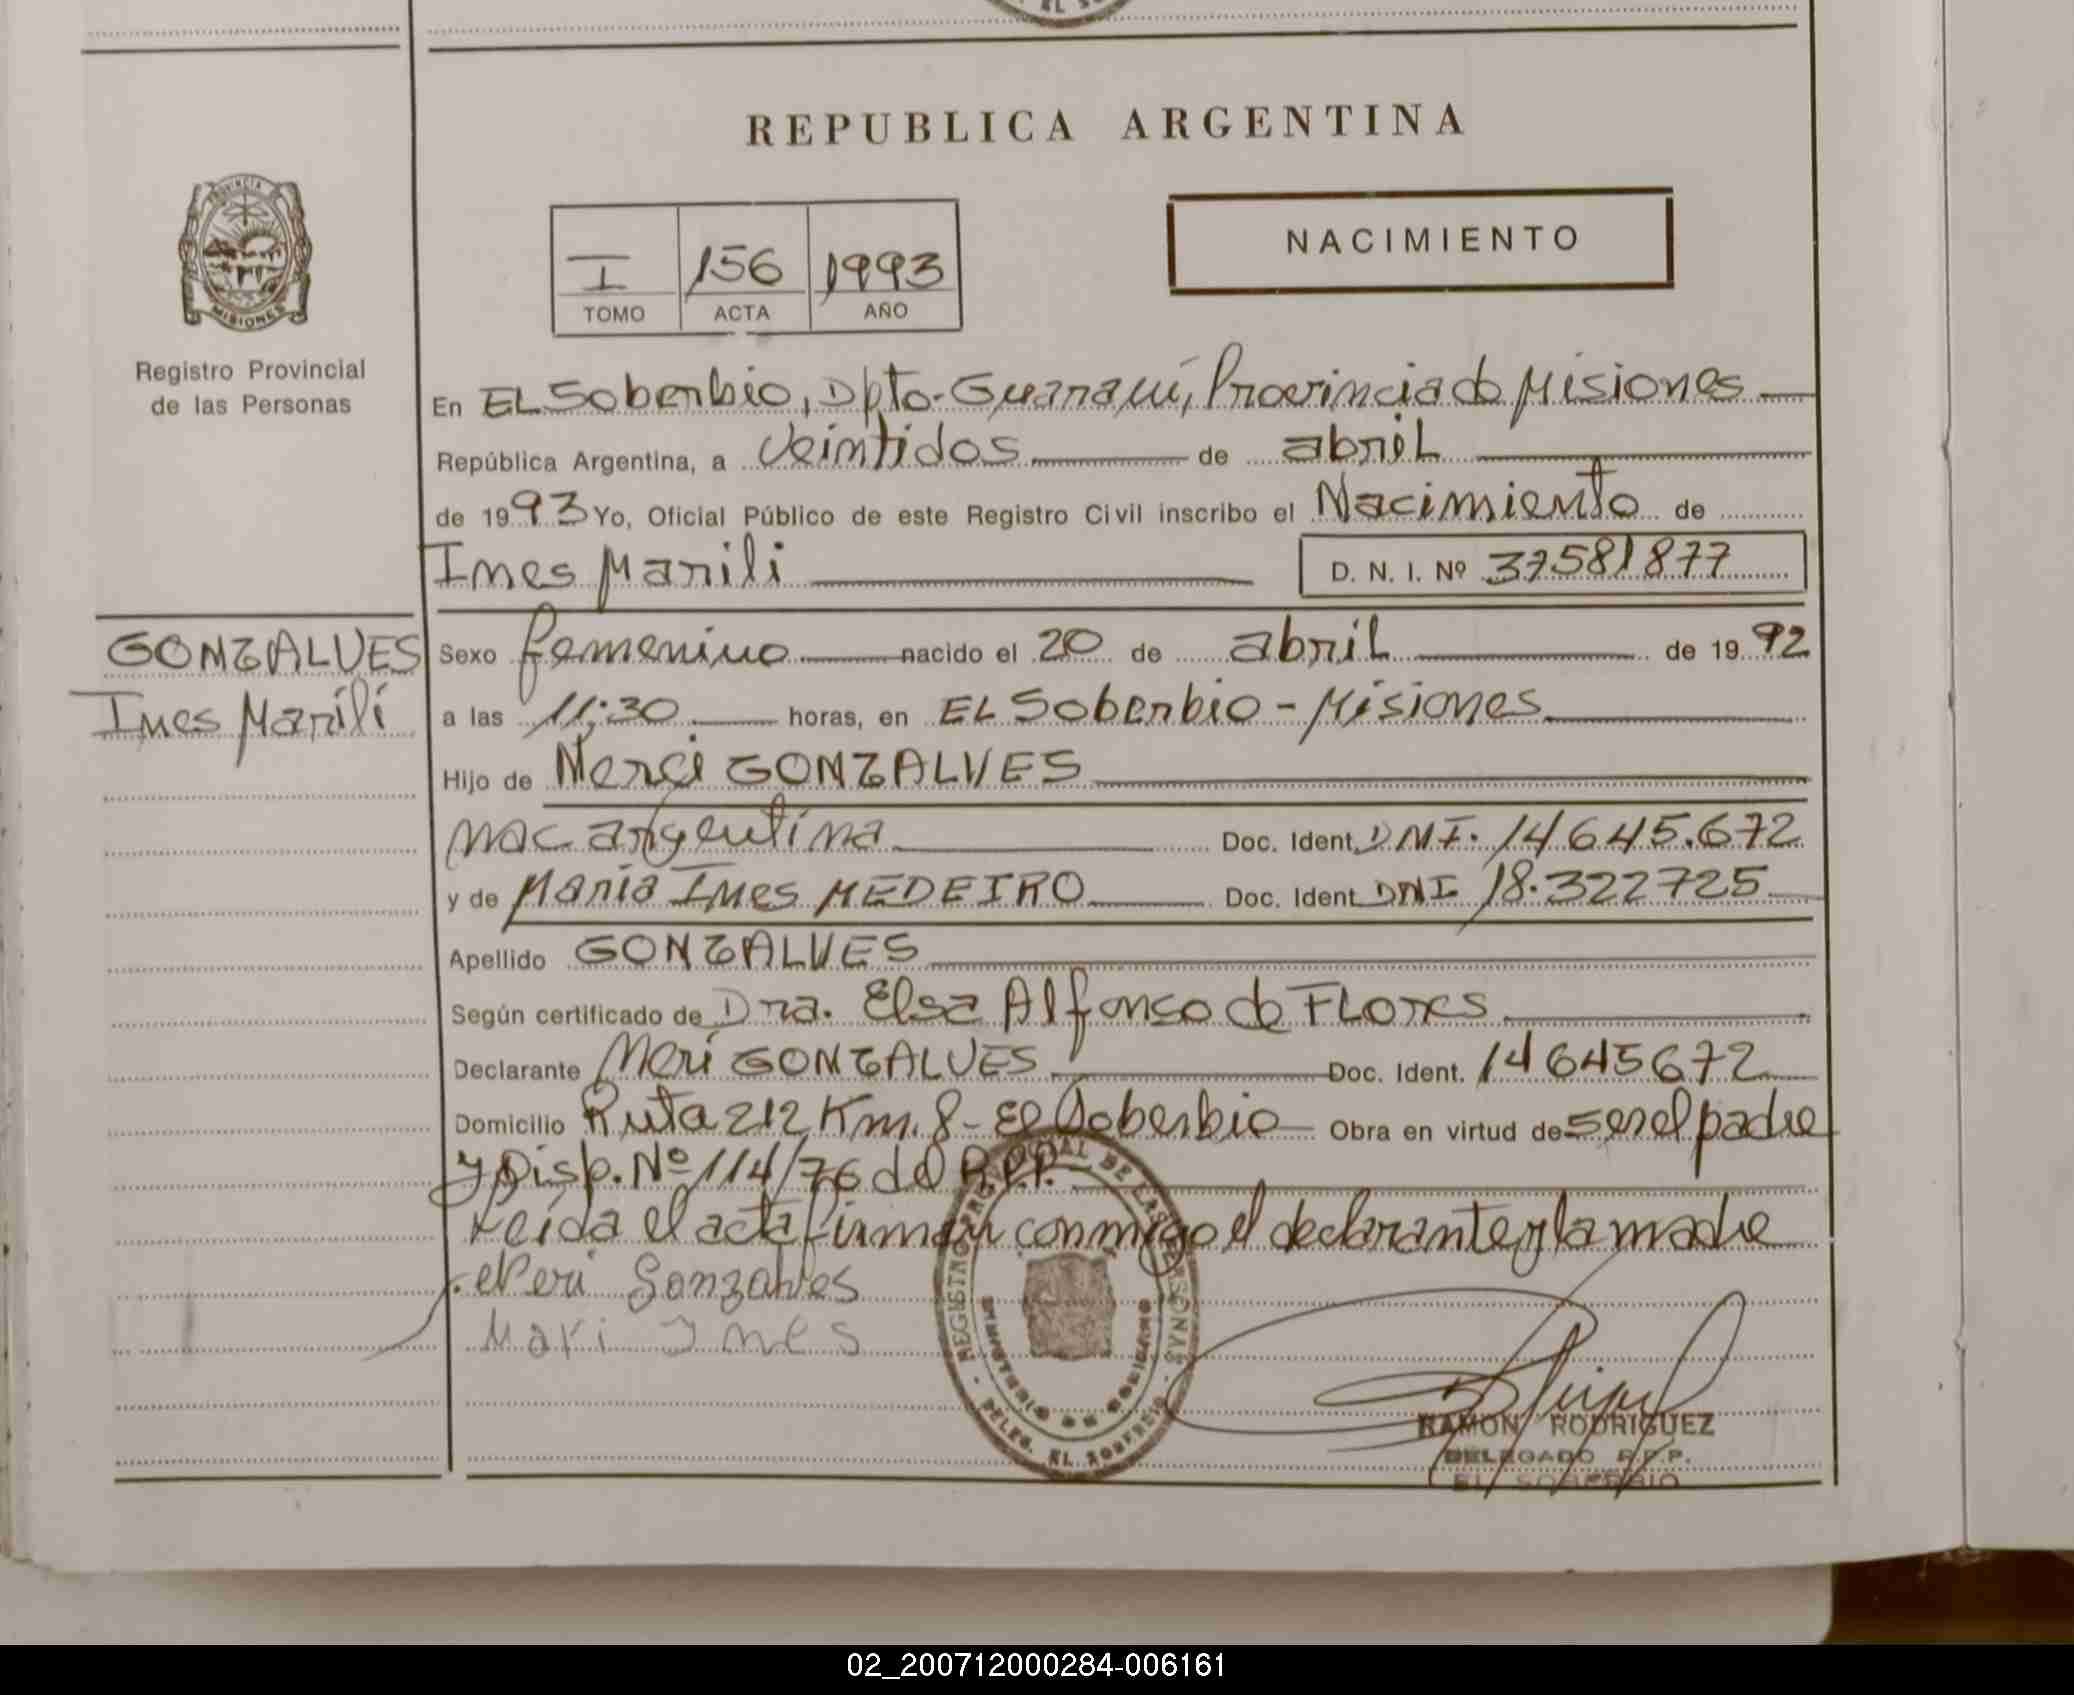 REPUBLICA ARGENTINA
PROVINCIA
MISIONES
Registro Provincial
de las Personas
I 156 1993
TOMO ACTA AÑO
NACIMIENTO
En EL Soberbio, Dpto. Guaraní, Provincia de Misiones
República Argentina, a veintidos de abril
de 1993 Yo, Oficial Público de este Registro Civil inscribo el Nacimiento de
Ines Marili D. N. I. Nº 37581877
GONZALVES
Ines Marili
Sexo femenino nacido el 20 de abril de 1992
a las 11:30 horas, en EL Soberbio - Misiones
Hijo de GONZALVES
nac argentina Doc. Ident. DNI. 14645.672
y de Maria Ines MEDEIRO Doc. Ident. DNI 18.322725
Apellido GONZALVES
Según certificado de Dra. Elsa Alfonso de FLORES
Declarante Neri GONZALVES Doc. Ident. 14645672
Domicilio Ruta 212 Km. 8 - El Soberbio Obra en virtud de ser el padre
y Disp. Nº 114/76 del R.P.P.
Leida el acta firman conmigo el declarante y la madre
Neri Gonzalves
Mari Ines
REGISTRO PROVINCIAL DE LAS PERSONAS
MINISTERIO DE GOBIERNO
DELEG. EL SOBERBIO
RAMON RODRIGUEZ
DELEGADO R.P.P.
EL SOBERBIO
02_200712000284-006161